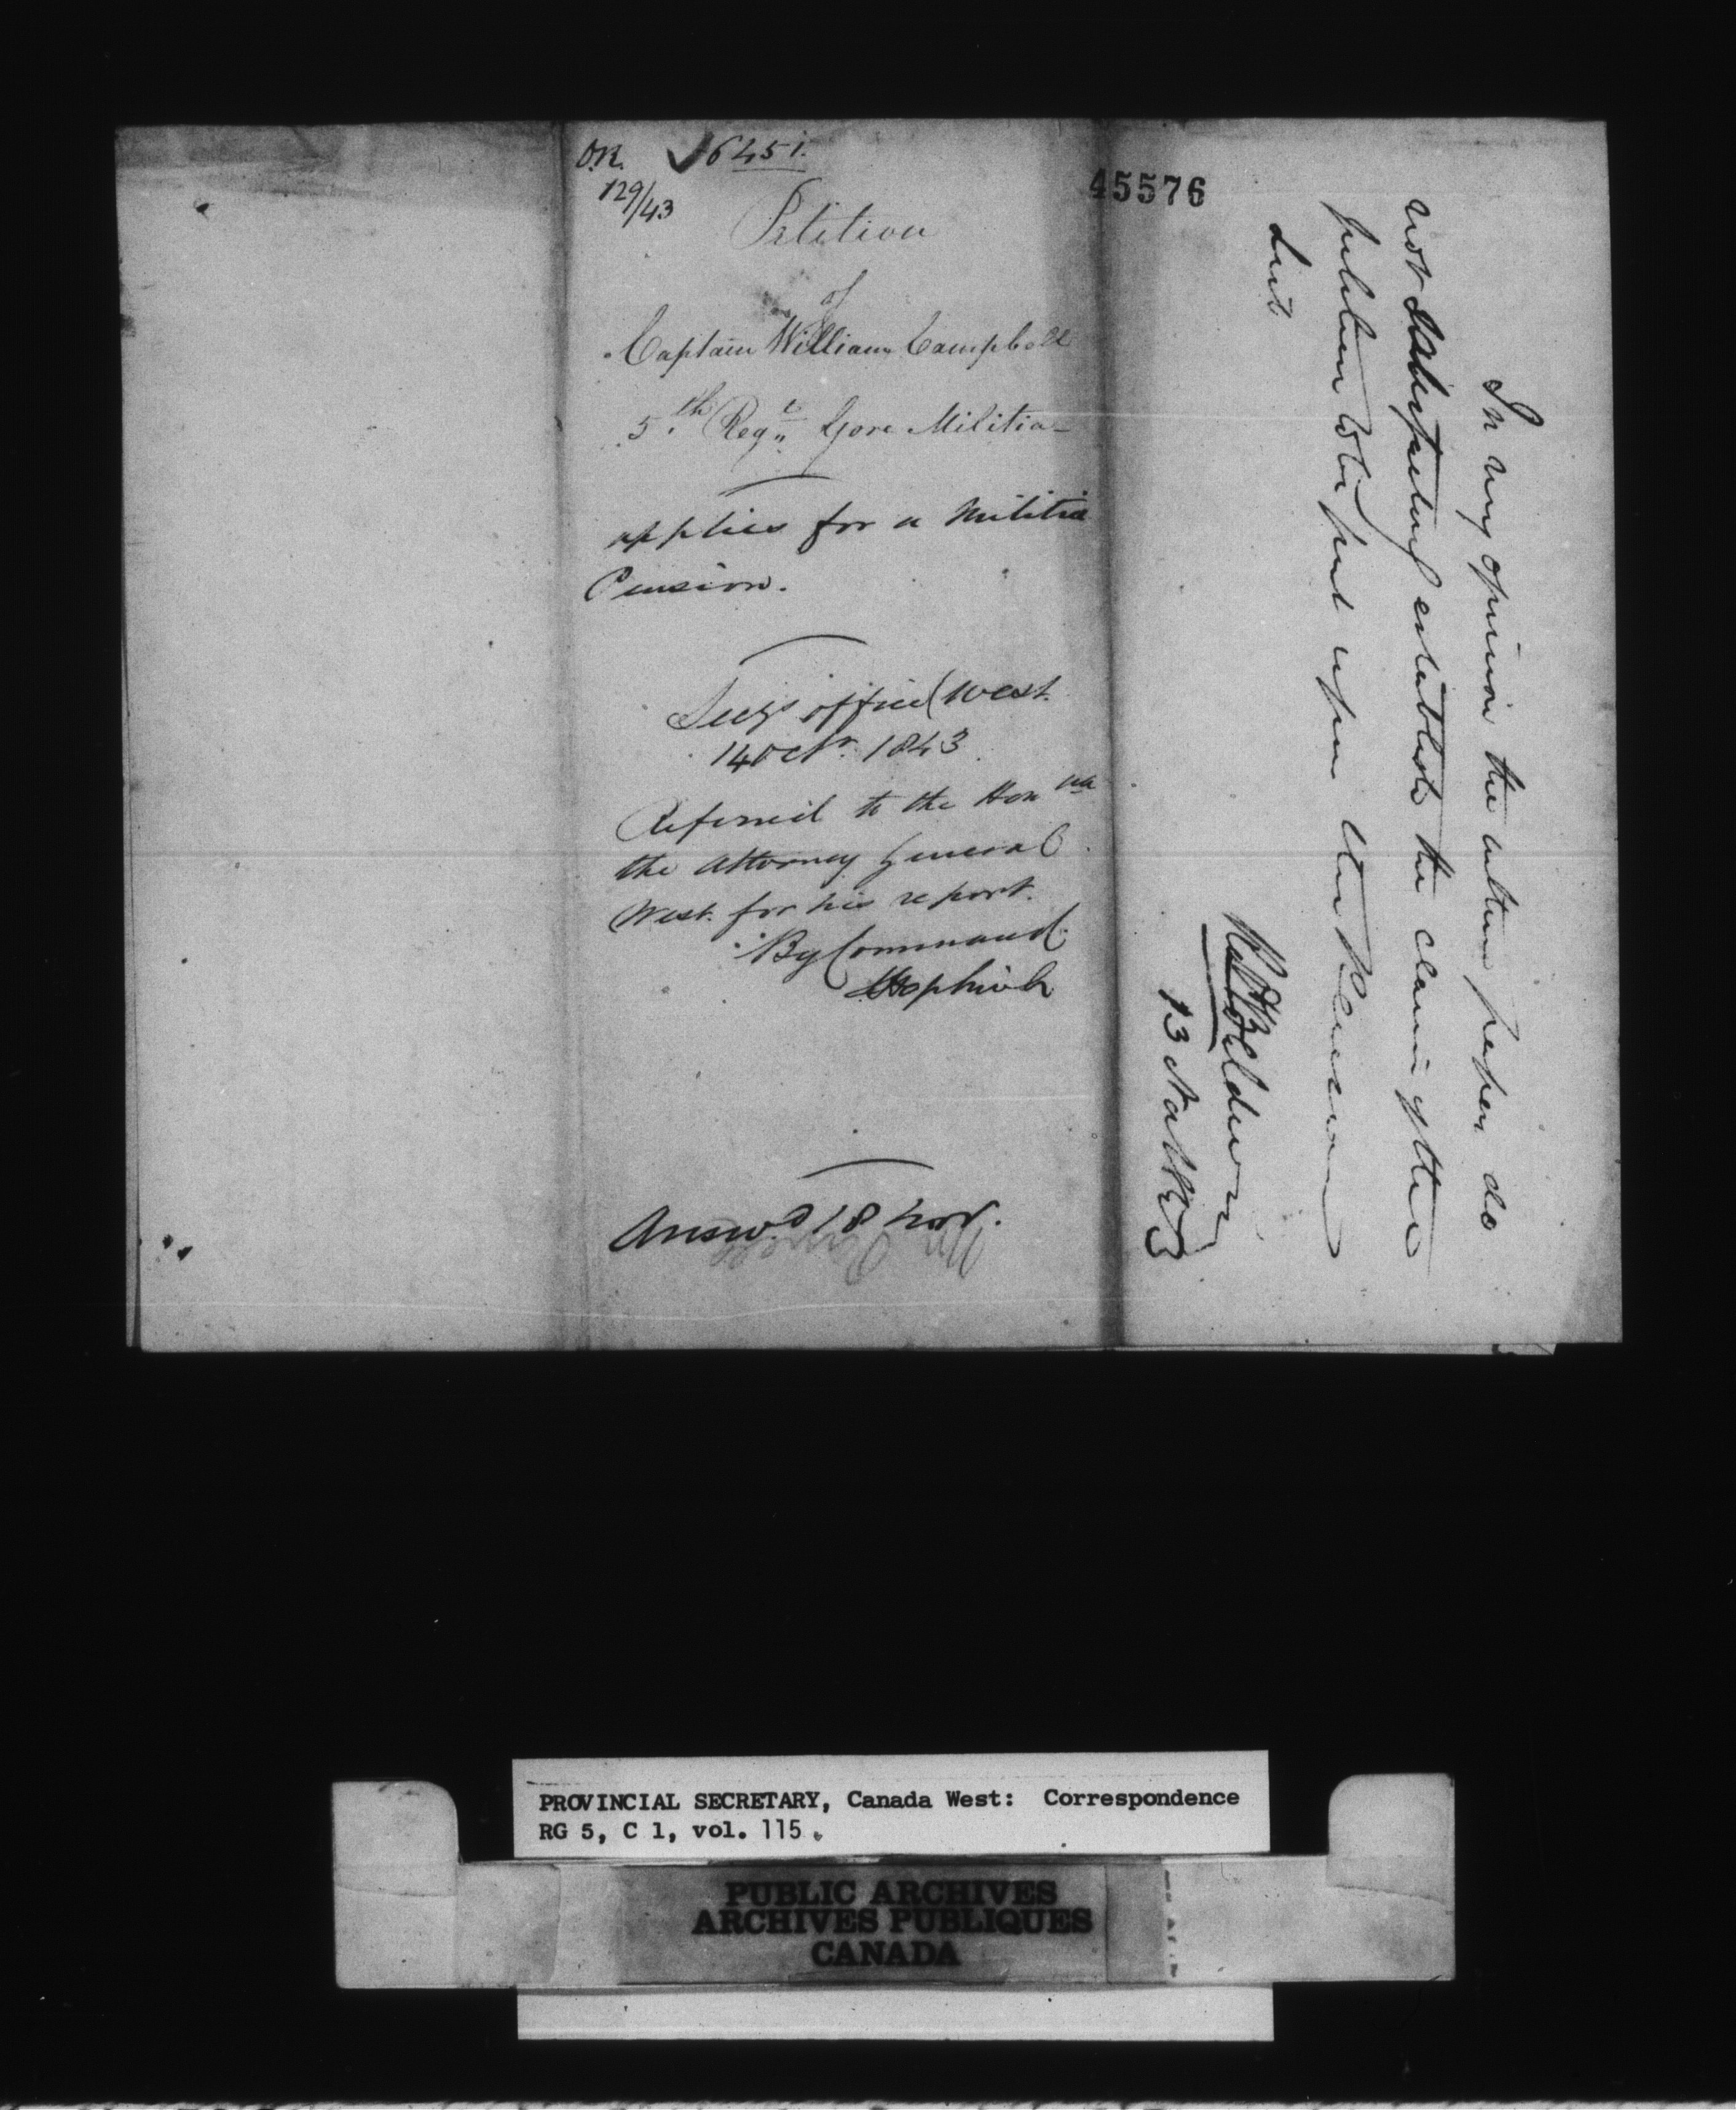 OR. 6451.
129/43
45576
Petition
of
Captain William Campbell
5th Regt Gore Militia
applies for a Militia
Pension.
Secys office West
14 Octr. 1843
Referred to the Honble
the Attorney General
West for his report.
By Command
Answd 18 Novr.
In my opinion the within papers do
not satisfactorily establish the claim of the
petitioner to be put upon the Pension
List
Robt Baldwin
13 Nov 43
PROVINCIAL SECRETARY, Canada West: Correspondence
RG 5, C 1, vol. 115.
PUBLIC ARCHIVES
ARCHIVES PUBLIQUES
CANADA